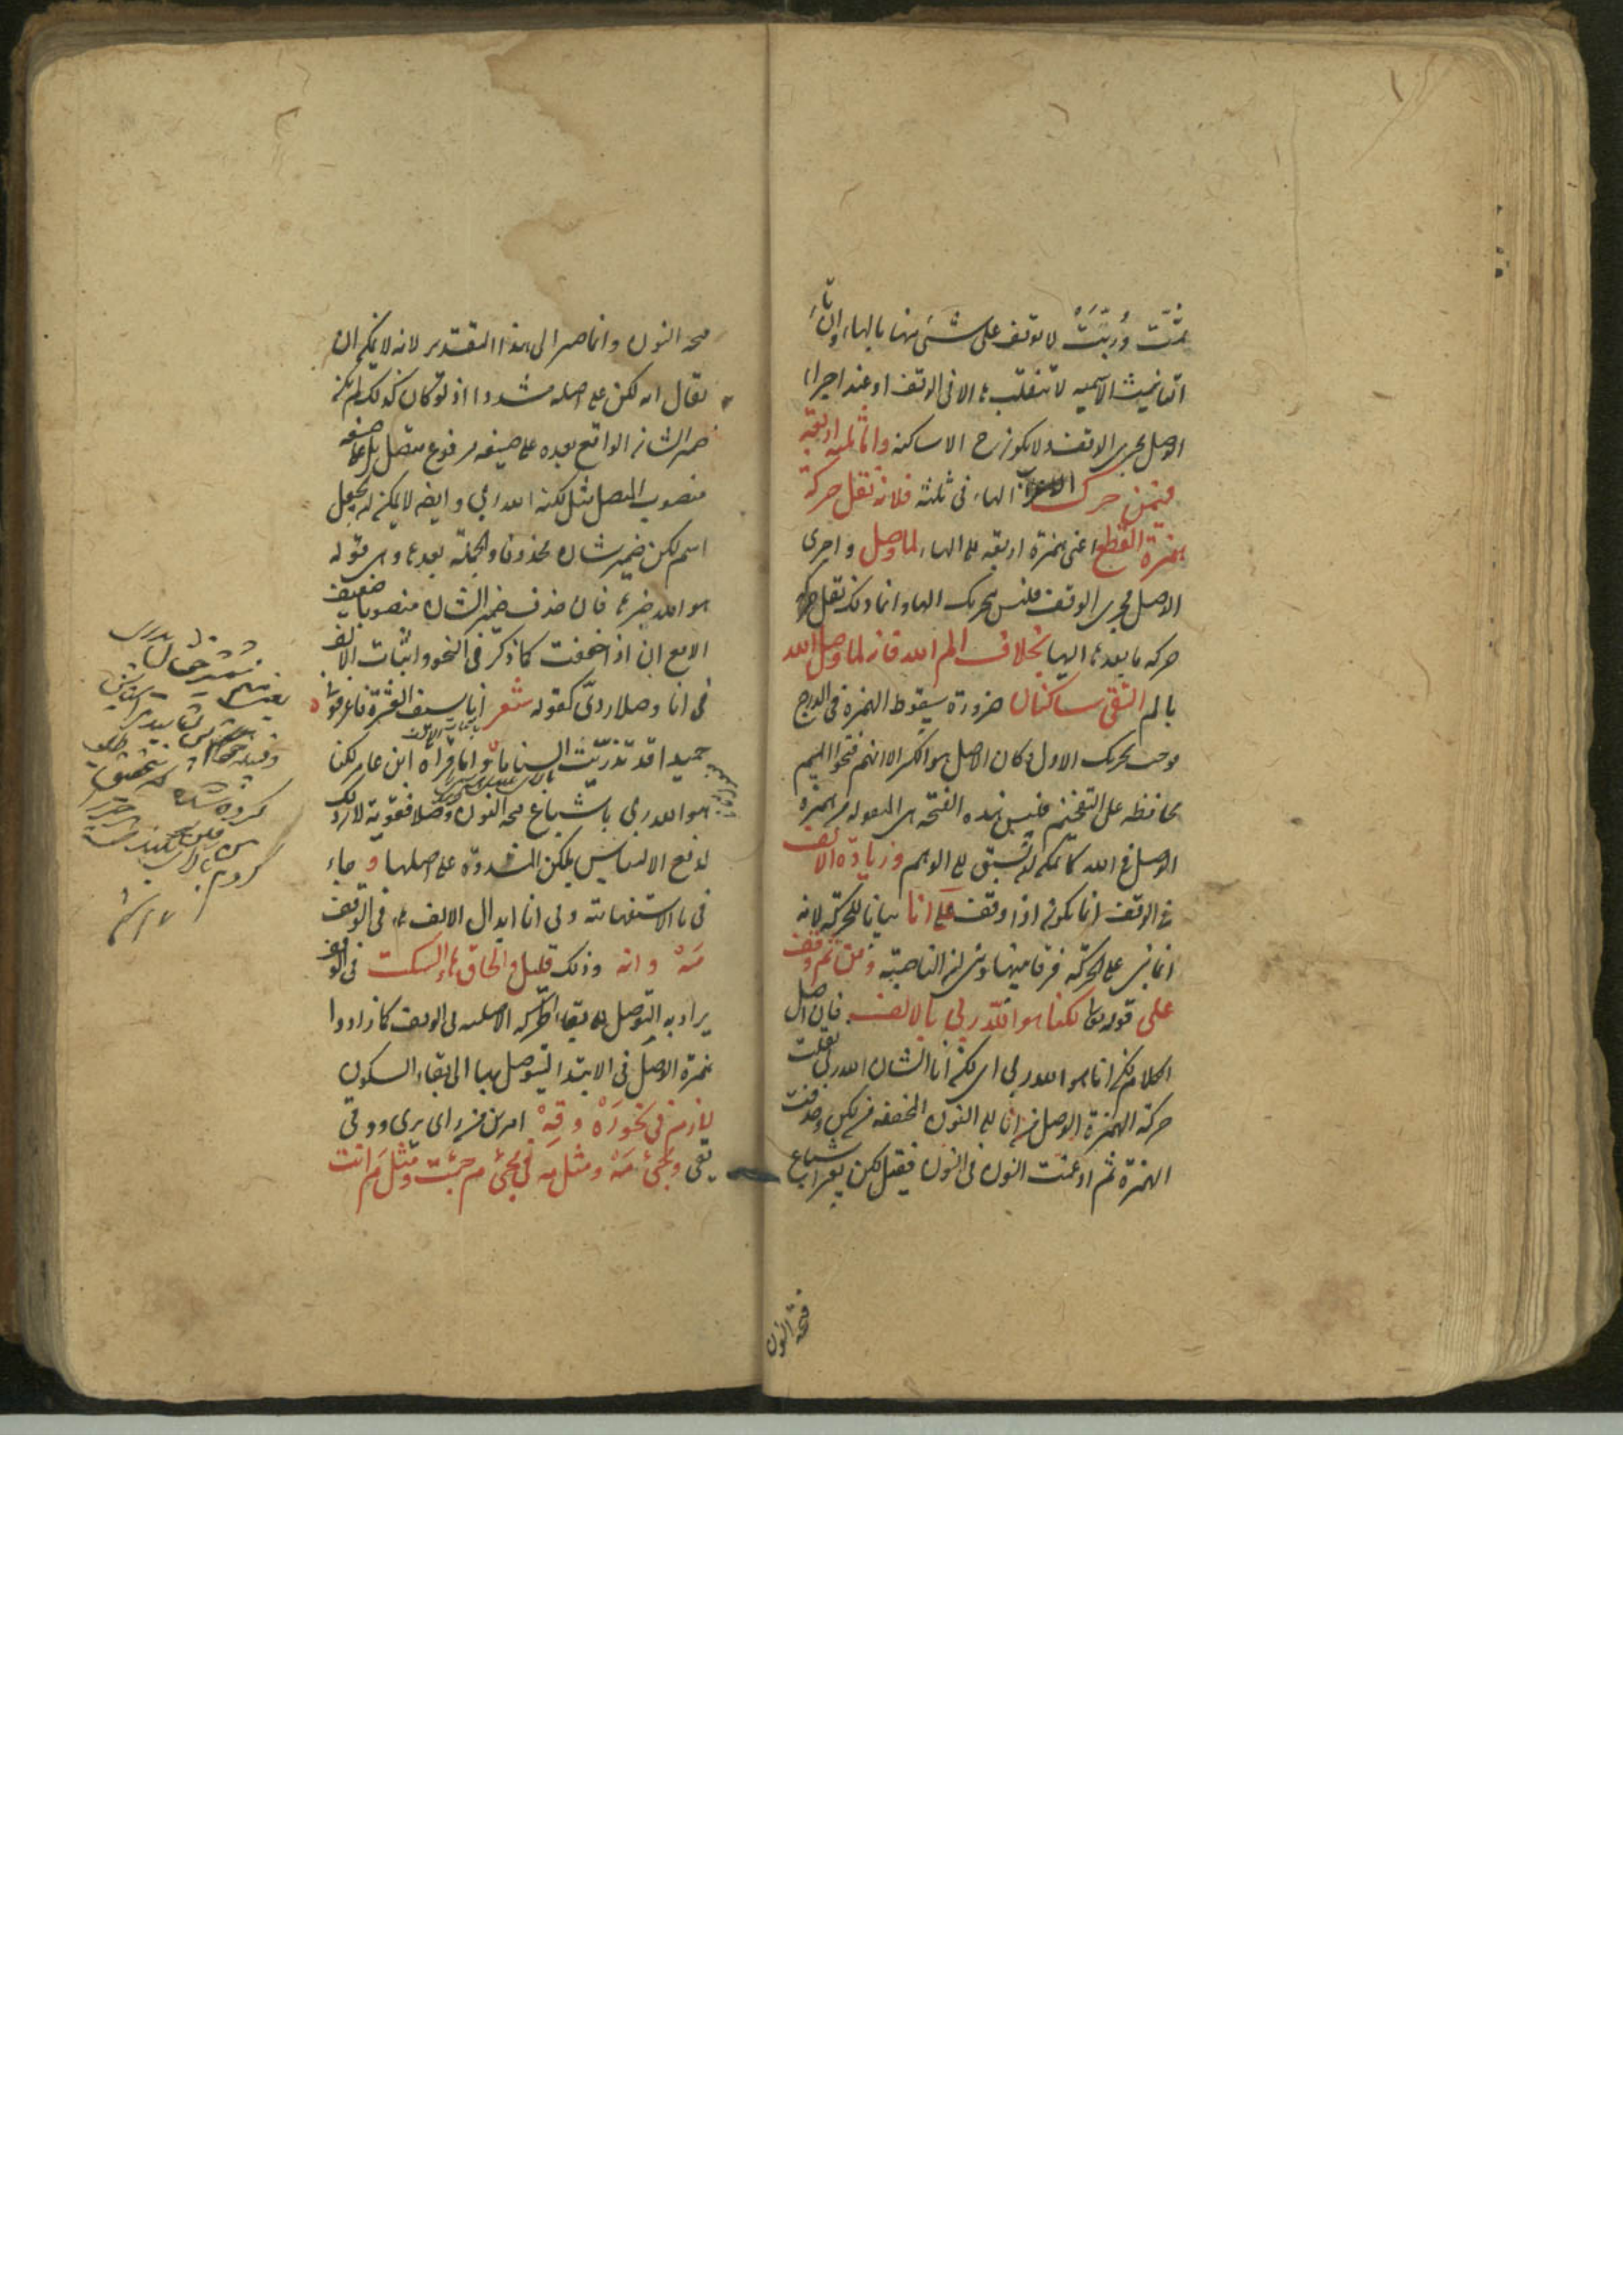 ثمّت ورُبّتَ لا توقف على شئ منها بالهاء وان تاء
التانيث الاسميه لا تنقلب هاء الا فى الوقف او عند اجراء
الوصل مجرى الوقف ولا يكون ح الا ساكنه واما ثلثه اربعة
فيمن حرك الهاء فى ثلثة فلانه نقل حركة
همزة القطع اعنى همزة اربعه الى الهاء لما وصل واجرى
الوصل مجرى الوقف فليس تحريك الهاء وانما ذلك نقل
حركه ما بعدها اليها بخلاف الم الله فانه لما وصل الله
بالم التقى ساكنان ضرورة سقوط الهمزة فى الدرج
وجب تحريك الاول وكان الاصل هو الكسر الا انهم فتحوا الميم
محافظه على التفخيم فليس هذه الفتحه هى المنقوله من همزة
الوصل فى الله كما يمكن ان يسبق الى الوهم وزيادة الالف
فى الوقف انما يكون اذا وقف على انا بيانا للحركة لانه
انما بنى على الحركة فرقا بينها وبين ان الناصبة ومن ثم وقف
على قوله تعالى لكنا هو الله ربى بالالف فان اصل
الكلام لكن انا هو الله ربى اى لكن انا الشان الله ربى نقلت
حركة الهمزة الوصل من انا الى النون المخففه من لكن وحذفت
الهمزة ثم ادغمت النون فى النون فيقال لكن بغير اشباع
فتحه النون
فتحه النون وانما صير الى هذا التقدير لانه لا يمكن ان
يقال انه لكن على اصله مشددا اذ لو كان كذلك لم يكن
ضمير الشان الواقع بعده على صيغه مرفوع منفصل بل على صيغه
منصوب المتصل مثل لكنه الله ربي وايضا لا يمكن ان يجعل
اسم لكن ضمير شان محذوفا والجملة بعدها وهى قوله
هو الله خبرها فان حذف ضمير الشان منصوبا ضعيف
الا مع ان اذا خففت كما ذكر فى النحو واثبات الالف
فى انا وصلا ردئ كقوله شعر انا سيف العشيرة فاعرفونى
حميدا قد تذريت السناما واما قراه ابن عامر لكنا
هو الله ربى باشباع فتحه النون وصلا فقوية لان ذلك
لدفع الالتباس بلكن المشددة على اصلها و جاء
فى ما الاستفهامية وفى انا ابدال الالف هاء فى الوقف
مَهْ و انه وذلك قليل والحاق هاء السكت فى الوقف
يراد به التوصل الى بقاء الحركه الاصليه فى الوقف كما زادوا
همزة الوصل فى الابتدا ليتوصل بها الى بقاء السكون
لازم فى نحو رَهْ وقِهْ امرين من راى يرى ووقى
يقى ومجئ مَهْ ومثل مه فى مجئ م جئت ومثل م انت